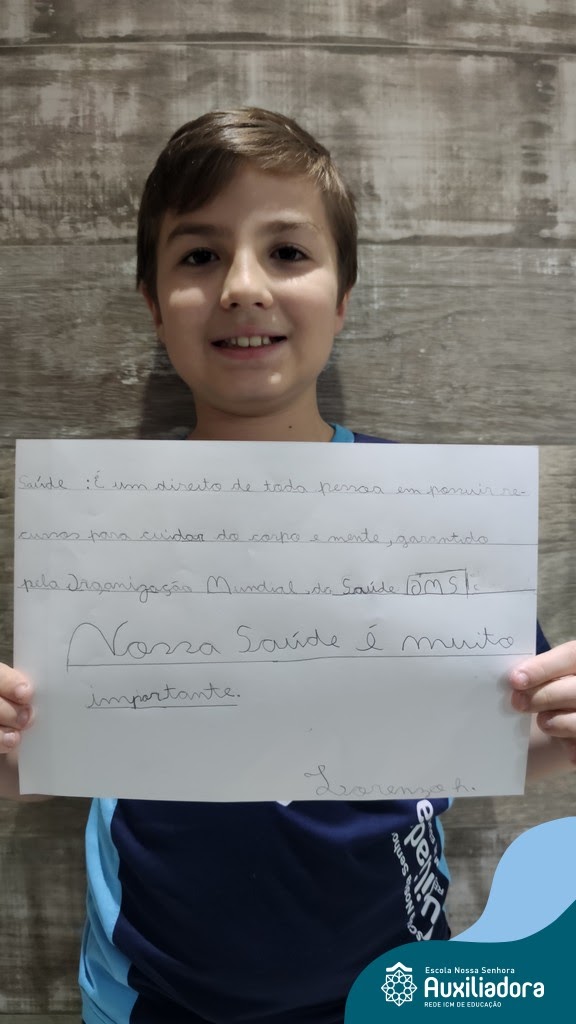 Saúde : É um direito de toda pessoa em possuir re-
cursos para cuidar do corpo e mente, garantido
pela Organização Mundial da Saúde OMS
Nossa Saúde é muito
importante.
Lorenzo h.
Escola Nossa Senhora
Auxiliadora
REDE ICM DE EDUCAÇÃO